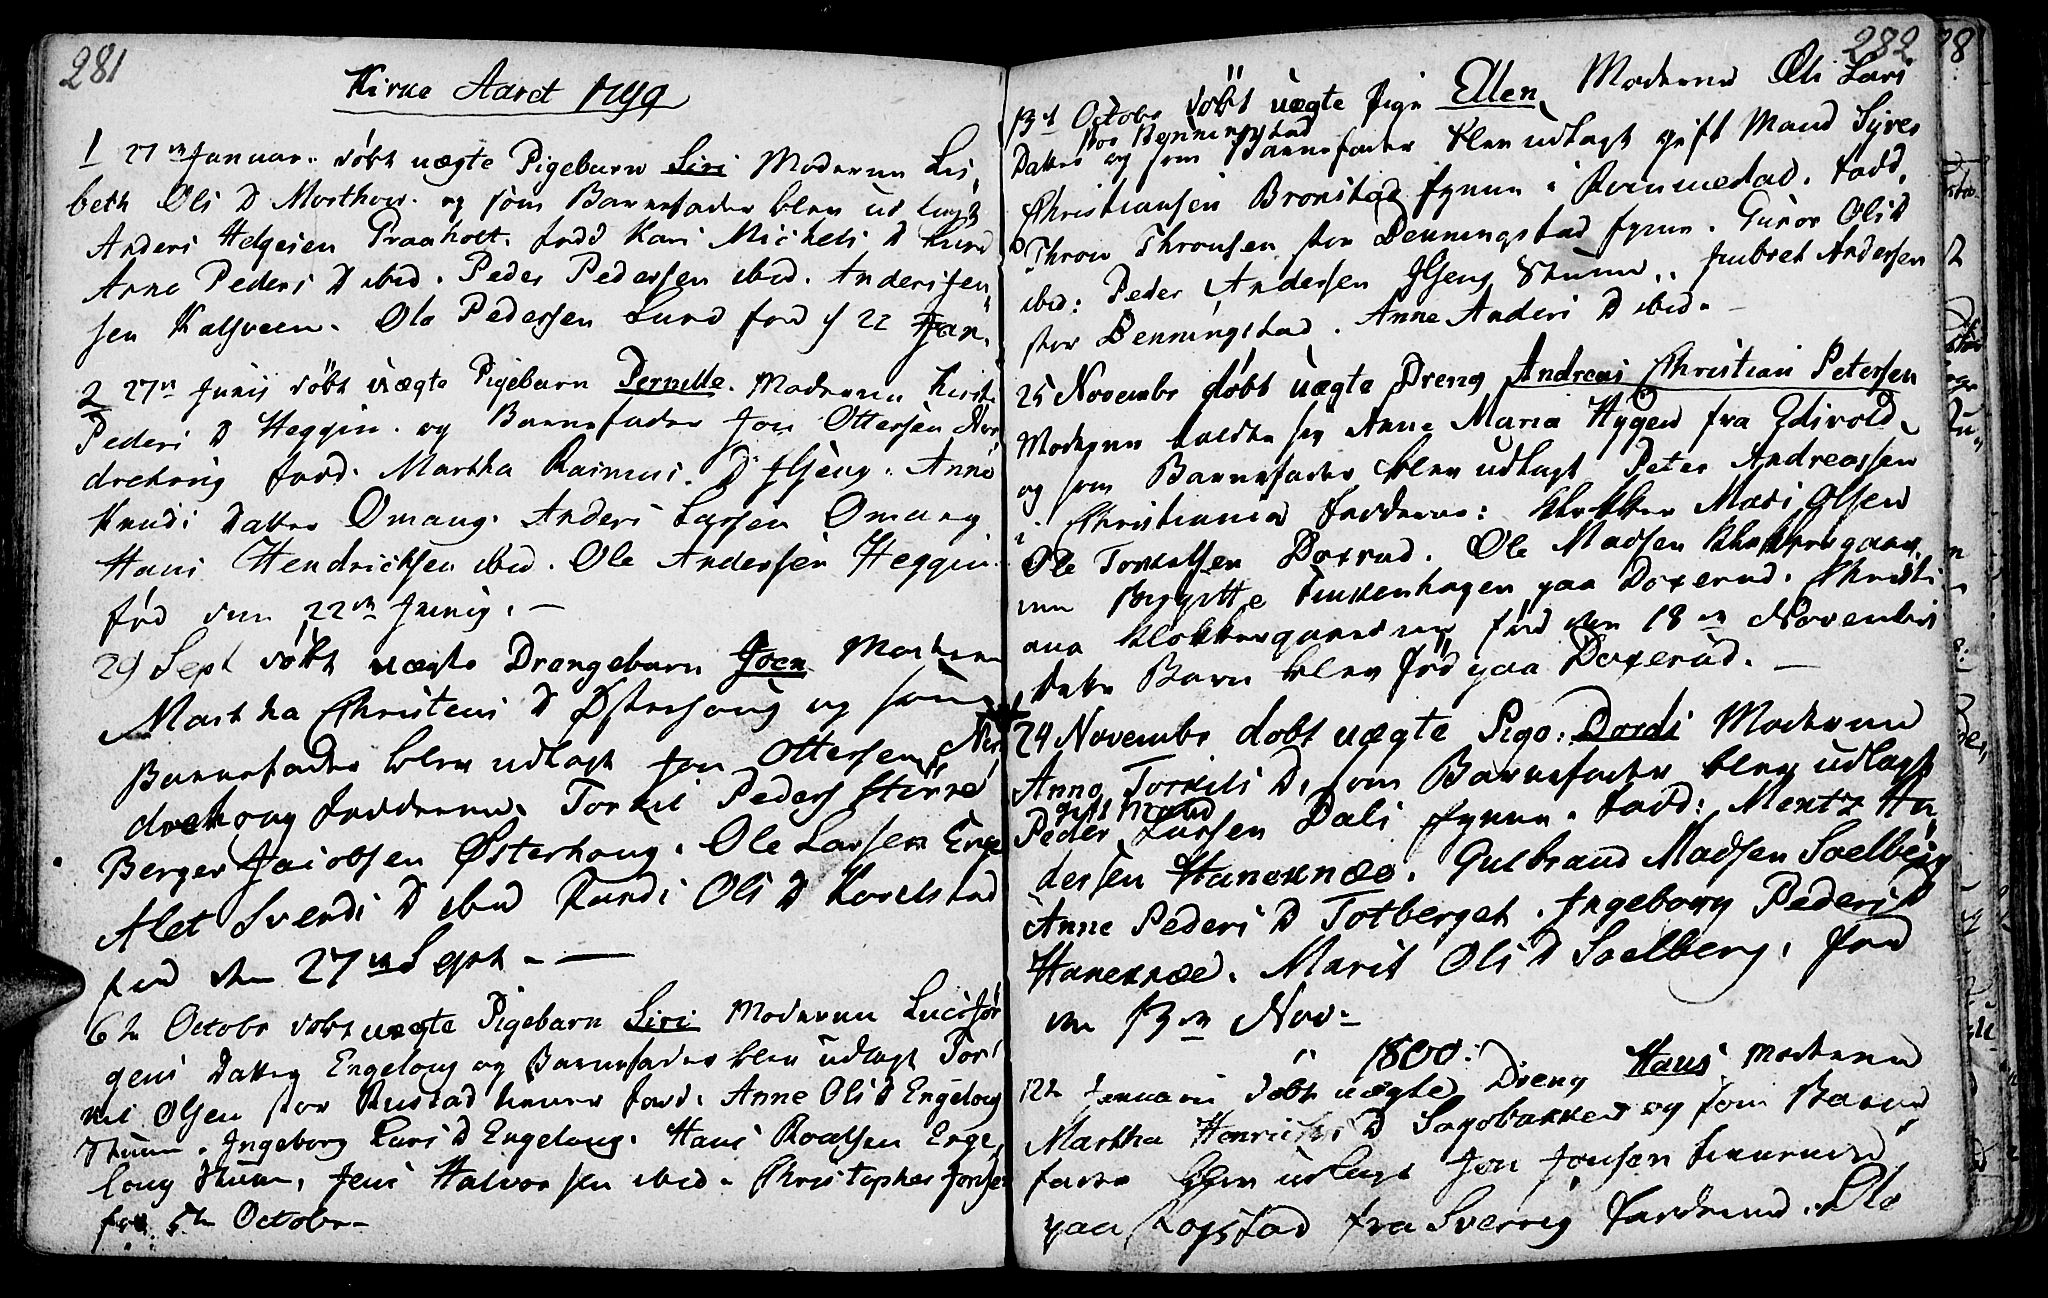 281
Kirke Aaret 1799
1 27de Januar. döbt uægte Pigebarn Siri Moderen Lis,
beth Ols D Morthow. og som Barnefader blev ud lagt
Anders Helgesen Praaholt. fadd Kari Michels D Lund
Arne Peders D ibid. Peder Pedersen ibid. Anders
sen Kalsveen. Ole Pedersen Lund fød d 22 Jan.
2 27de Junij döbt uægte Pigebarn Pernille. Moderen Kirsti
Peders D Heggin. og Barnefader Jon Ottersen
fadd. Martha Rasmus D Ilseng. Anne
Knuds Datter Omang. Anders Larsen Omang
Hans Hendrichsen ibid. Ole Andersen Heggin
fød den 22de Junij. -
29 Sept döbt uægte Drengebarn Joen Moderen
Martha Christens D Østerhoug og som
Barnefader blev udlagt Jon Ottersen
fadderne. Torkil Peders
Berger Jacobsen Østerhoug. Ole Larsen Enge
Alet Svends D ibid Randi Ols D Korelstad
fød den 27de Sept. -
6te Octobr döbt uægte Pigebarn Siri Moderen Lucie Jör
gens Datter Engeloug og Barnefader blev udlagt Tor
kil Olsen stor Rustad fadd. Anne Ols D Engeloug
Ingeborg Lars D Engeloug. Hans Roalsen Enge,
loug Jens Halvorsen ibid. Christopher Jonsen
fød 5te Octobr -
282
13de Octobr döbt uægte Pige Ellen Moderen Eli Lars
stor Benningstad
Datter og som Barnefader blev udlagt gift Mand Syver
Christiansen Bronstad i Rommedal. fadd.
Thron Thronsen stor Benningstad Guror Ols D
ibid: Peder Andersen Ilseng Gulbret Andersen
stor Benningstad. Anne Anders D ibid. -
25 Novembr döbt uægte Dreng Andreas Christian Petersen
Moderen kaldte sig Anne Maria Hygen fra Edsvold
og som Barnefader blev udlagt Peter Andreassen
i Christiania fadderne: Klokker Mads Olsen
Ole Torkelsen Doxrud. Ole Madsen Klokkergaar
Bygitte Finkenhagen paa Doxerud. Christi
ana Klokkergaarden fød den 18de Novembris
dette Barn blev fød paa Doxerud. -
24 Novembr döbt uægte Pige: Dordi Moderen
Anne Torkils D, som Barnefader blev udlagt
gift Mand
Peder Larsen Dali fadd: Mentz An,
dersen Haneknæe. Gulbrand Madsen Soelberg
Anne Peders D Totberget. Ingeborg Peders D
Haneknæe. Marit Ols D Soelberg. fød
den 13de Nov.
1800:
12te Januarii döbt uægte Dreng Hans Moderen
Martha Henrichs D Sagebakken og som Barne
fader blev udlagt Jon Jonsen
paa Rogstad fra Sverrig fadderne. Ole